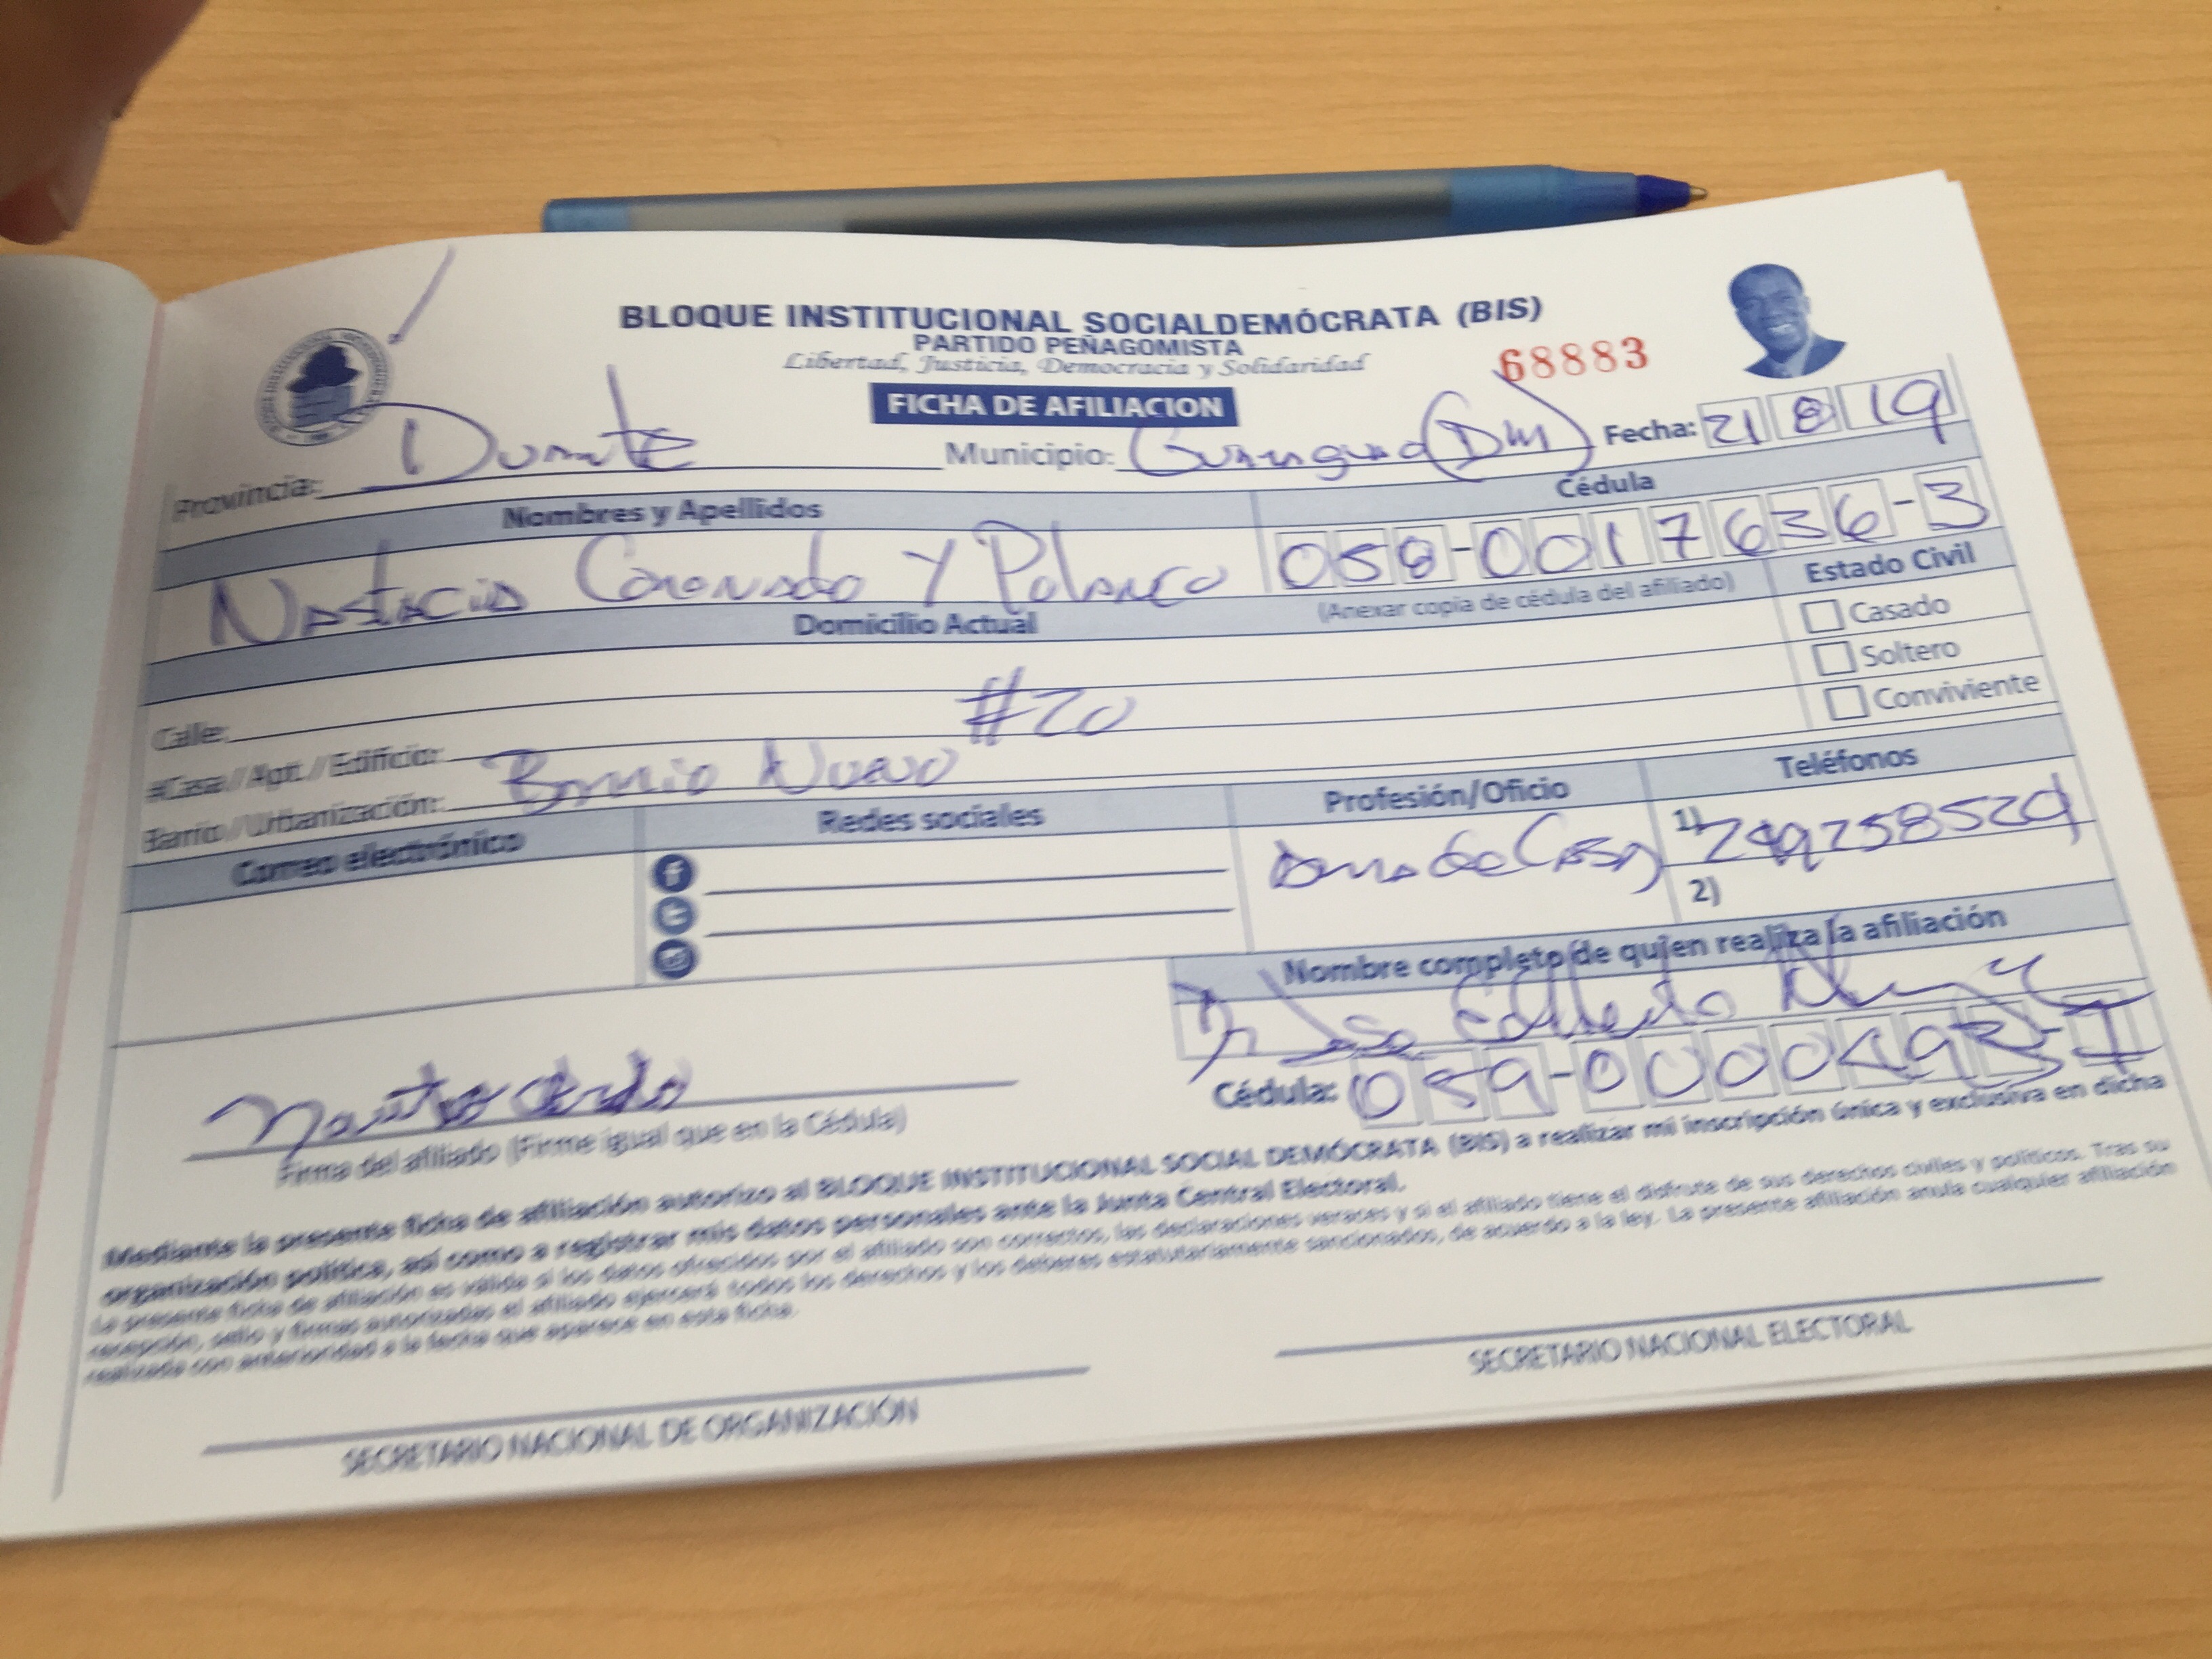 BLOQUE INSTITUCIONAL SOCIALDEMÓCRATA (BIS)
PARTIDO PEÑAGOMISTA
Libertad, Justicia, Democracia y Solidaridad
68883
FICHA DE AFILIACION
Provincia: Duarte Municipio: (DM) Fecha: 21 8 19
Nombres y Apellidos Cédula
Nastacia Coronado Y Polanco 058-0017636-3
(Anexar copia de cédula del afiliado)
Domicilio Actual Estado Civil
Casado
Soltero
Conviviente
Calle:
#Casa / Apt. / Edificio: #20
Barrio / Urbanización: Barrio Nuevo
Correo electrónico Redes sociales Profesión/Oficio Teléfonos
Ama de Casa 1)
2)
Nombre completo de quien realiza la afiliación
Jose
Cédula: 059-0000493-7
Firma del afiliado (Firme igual que en la Cédula)
Mediante la presente ficha de afiliación autorizo al BLOQUE INSTITUCIONAL SOCIAL DEMÓCRATA (BIS) a realizar mi inscripción única y exclusiva en dicha
organización política, así como a registrar mis datos personales ante la Junta Central Electoral.
La presente ficha de afiliación es válida si los datos ofrecidos por el afiliado son correctos, las declaraciones veraces y si el afiliado tiene el disfrute de sus derechos civiles y políticos. Tras su
recepción, sello y firmas autorizadas el afiliado ejercerá todos los derechos y los deberes estatutariamente sancionados, de acuerdo a la ley. La presente afiliación anula cualquier afiliación
realizada con anterioridad a la fecha que aparece en esta ficha.
SECRETARIO NACIONAL DE ORGANIZACIÓN
SECRETARIO NACIONAL ELECTORAL